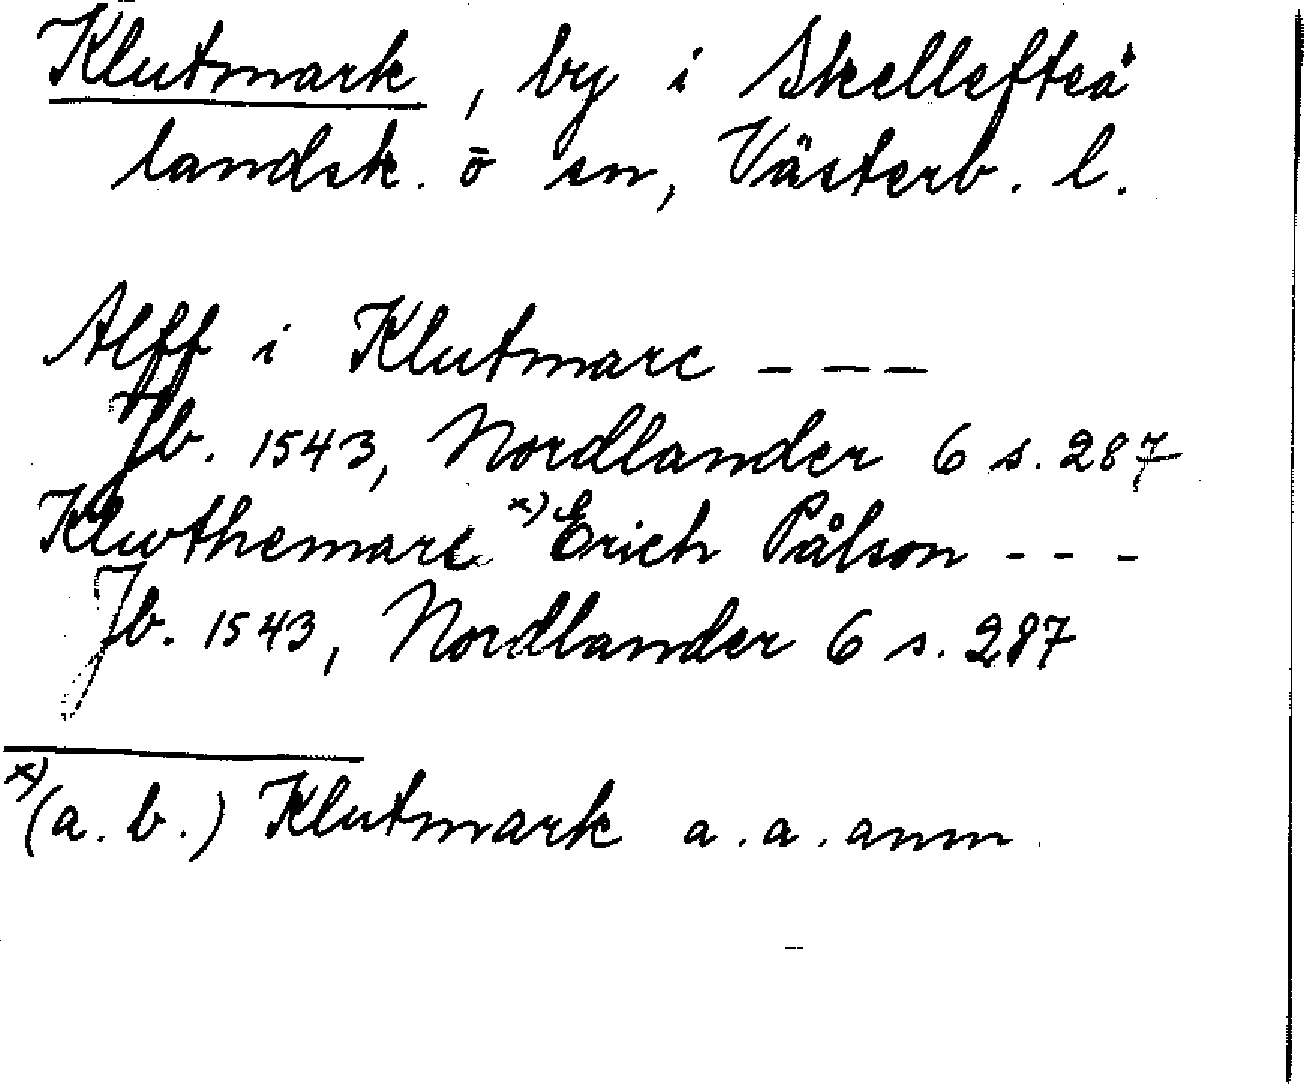 Klutmark, by i Skellefteå
landsk. o sn, Västerb. l.
Alff i Klutmarc ---
Jb. 1543, Nordlander 6 s. 287
Kluthemarc x) Erich Pålson ---
Jb. 1543, Nordlander 6 s. 287
x) (a. b.) Klutmark a. a. anm